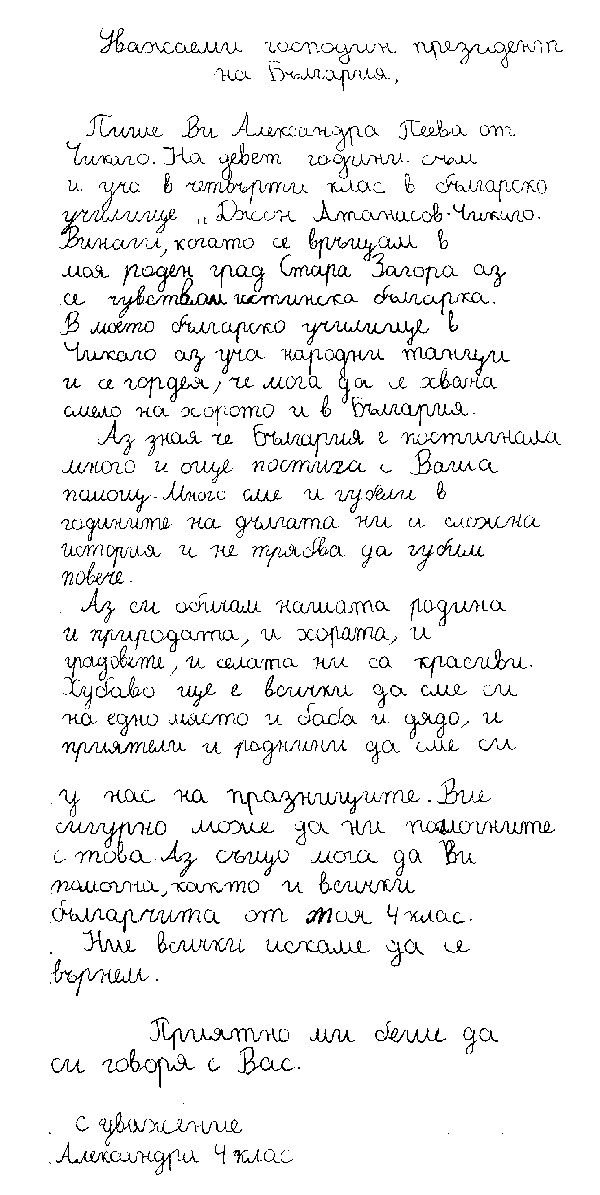 Уважаеми господин президент
на България,
Пише Ви Александра Пеева от
Чикаго. На девет години съм
и уча в четвърти клас в българско
училище „Джон Атанасов-Чикаго.
Винаги, когато се връщам в
моя роден град Стара Загора аз
се чувствам истинска българка.
В моето българско училище в
Чикаго аз уча народни танци
и се гордея, че мога да се хвана
смело на хорото и в България.
Аз зная че България е постигнала
много и още постига с Ваша
помощ. Много сме и губили в
годините на дългата ни и сложна
история и не трябва да губим
повече.
Аз си обичам нашата родина
и природата, и хората, и
градовете, и селата ни са красиви.
Хубаво ще е всички да сме си
на едно място и баба и дядо, и
приятели и роднини да сме си
у нас на празниците. Вие
сигурно може да ни помогните
с това Аз също мога да Ви
помогна, както и всички
българчита от моя 4 клас.
Ние всички искаме да се
върнем.
Приятно ми беше да
си говоря с Вас.
С уважение
Александра 4 клас